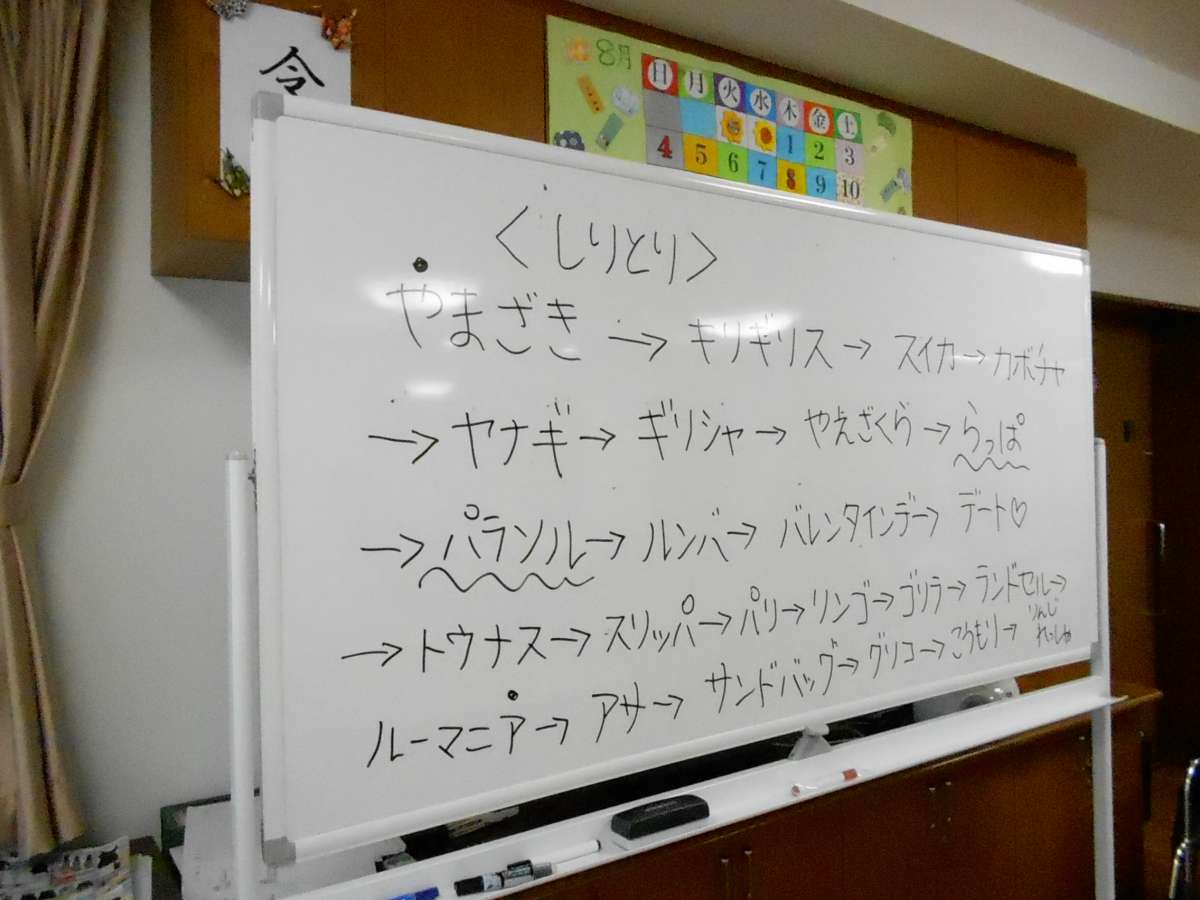 令
8月
日 月 火 水 木 金 土
1 2 3
4 5 6 7 8 9 10
<しりとり>
やまざき → キリギリス → スイカ → カボチャ
→ ヤナギ → ギリシャ → やえざくら → らっぱ
→ パラソル → ルンバ → バレンタインデー → デート♡
→ トウナス → スリッパ → パリ → リンゴ → ゴリラ → ランドセル →
ルーマニア → アサ → サンドバッグ → グリコ → こうもり → りんじれっしゃ